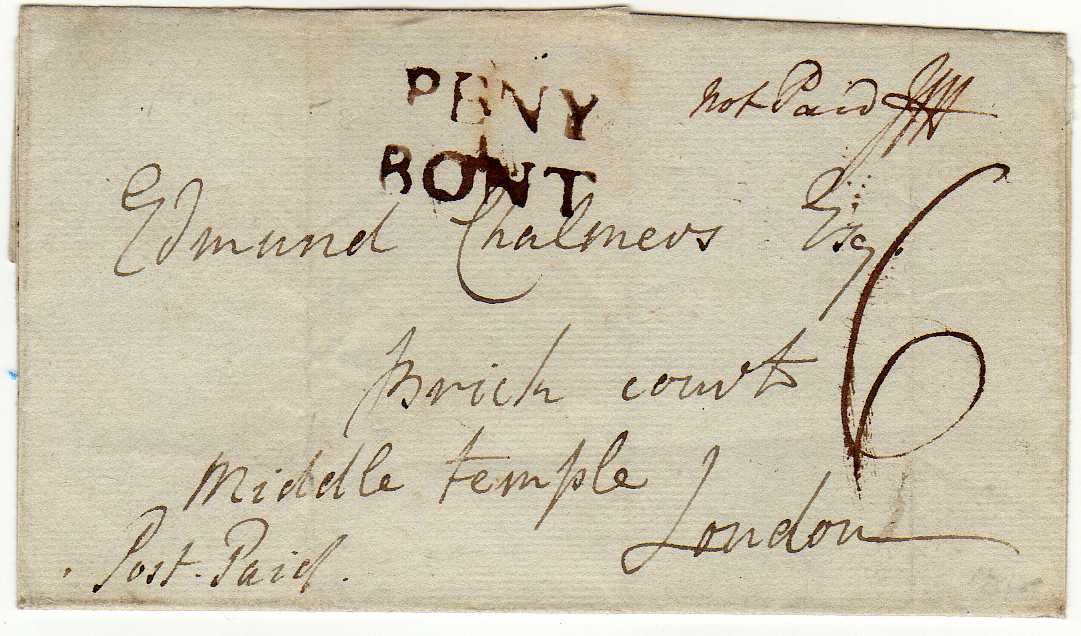 PENY
BONT
not Paid
Edmund Chalmers Esq.
6
Brick court
Middle temple
London
Post Paid.